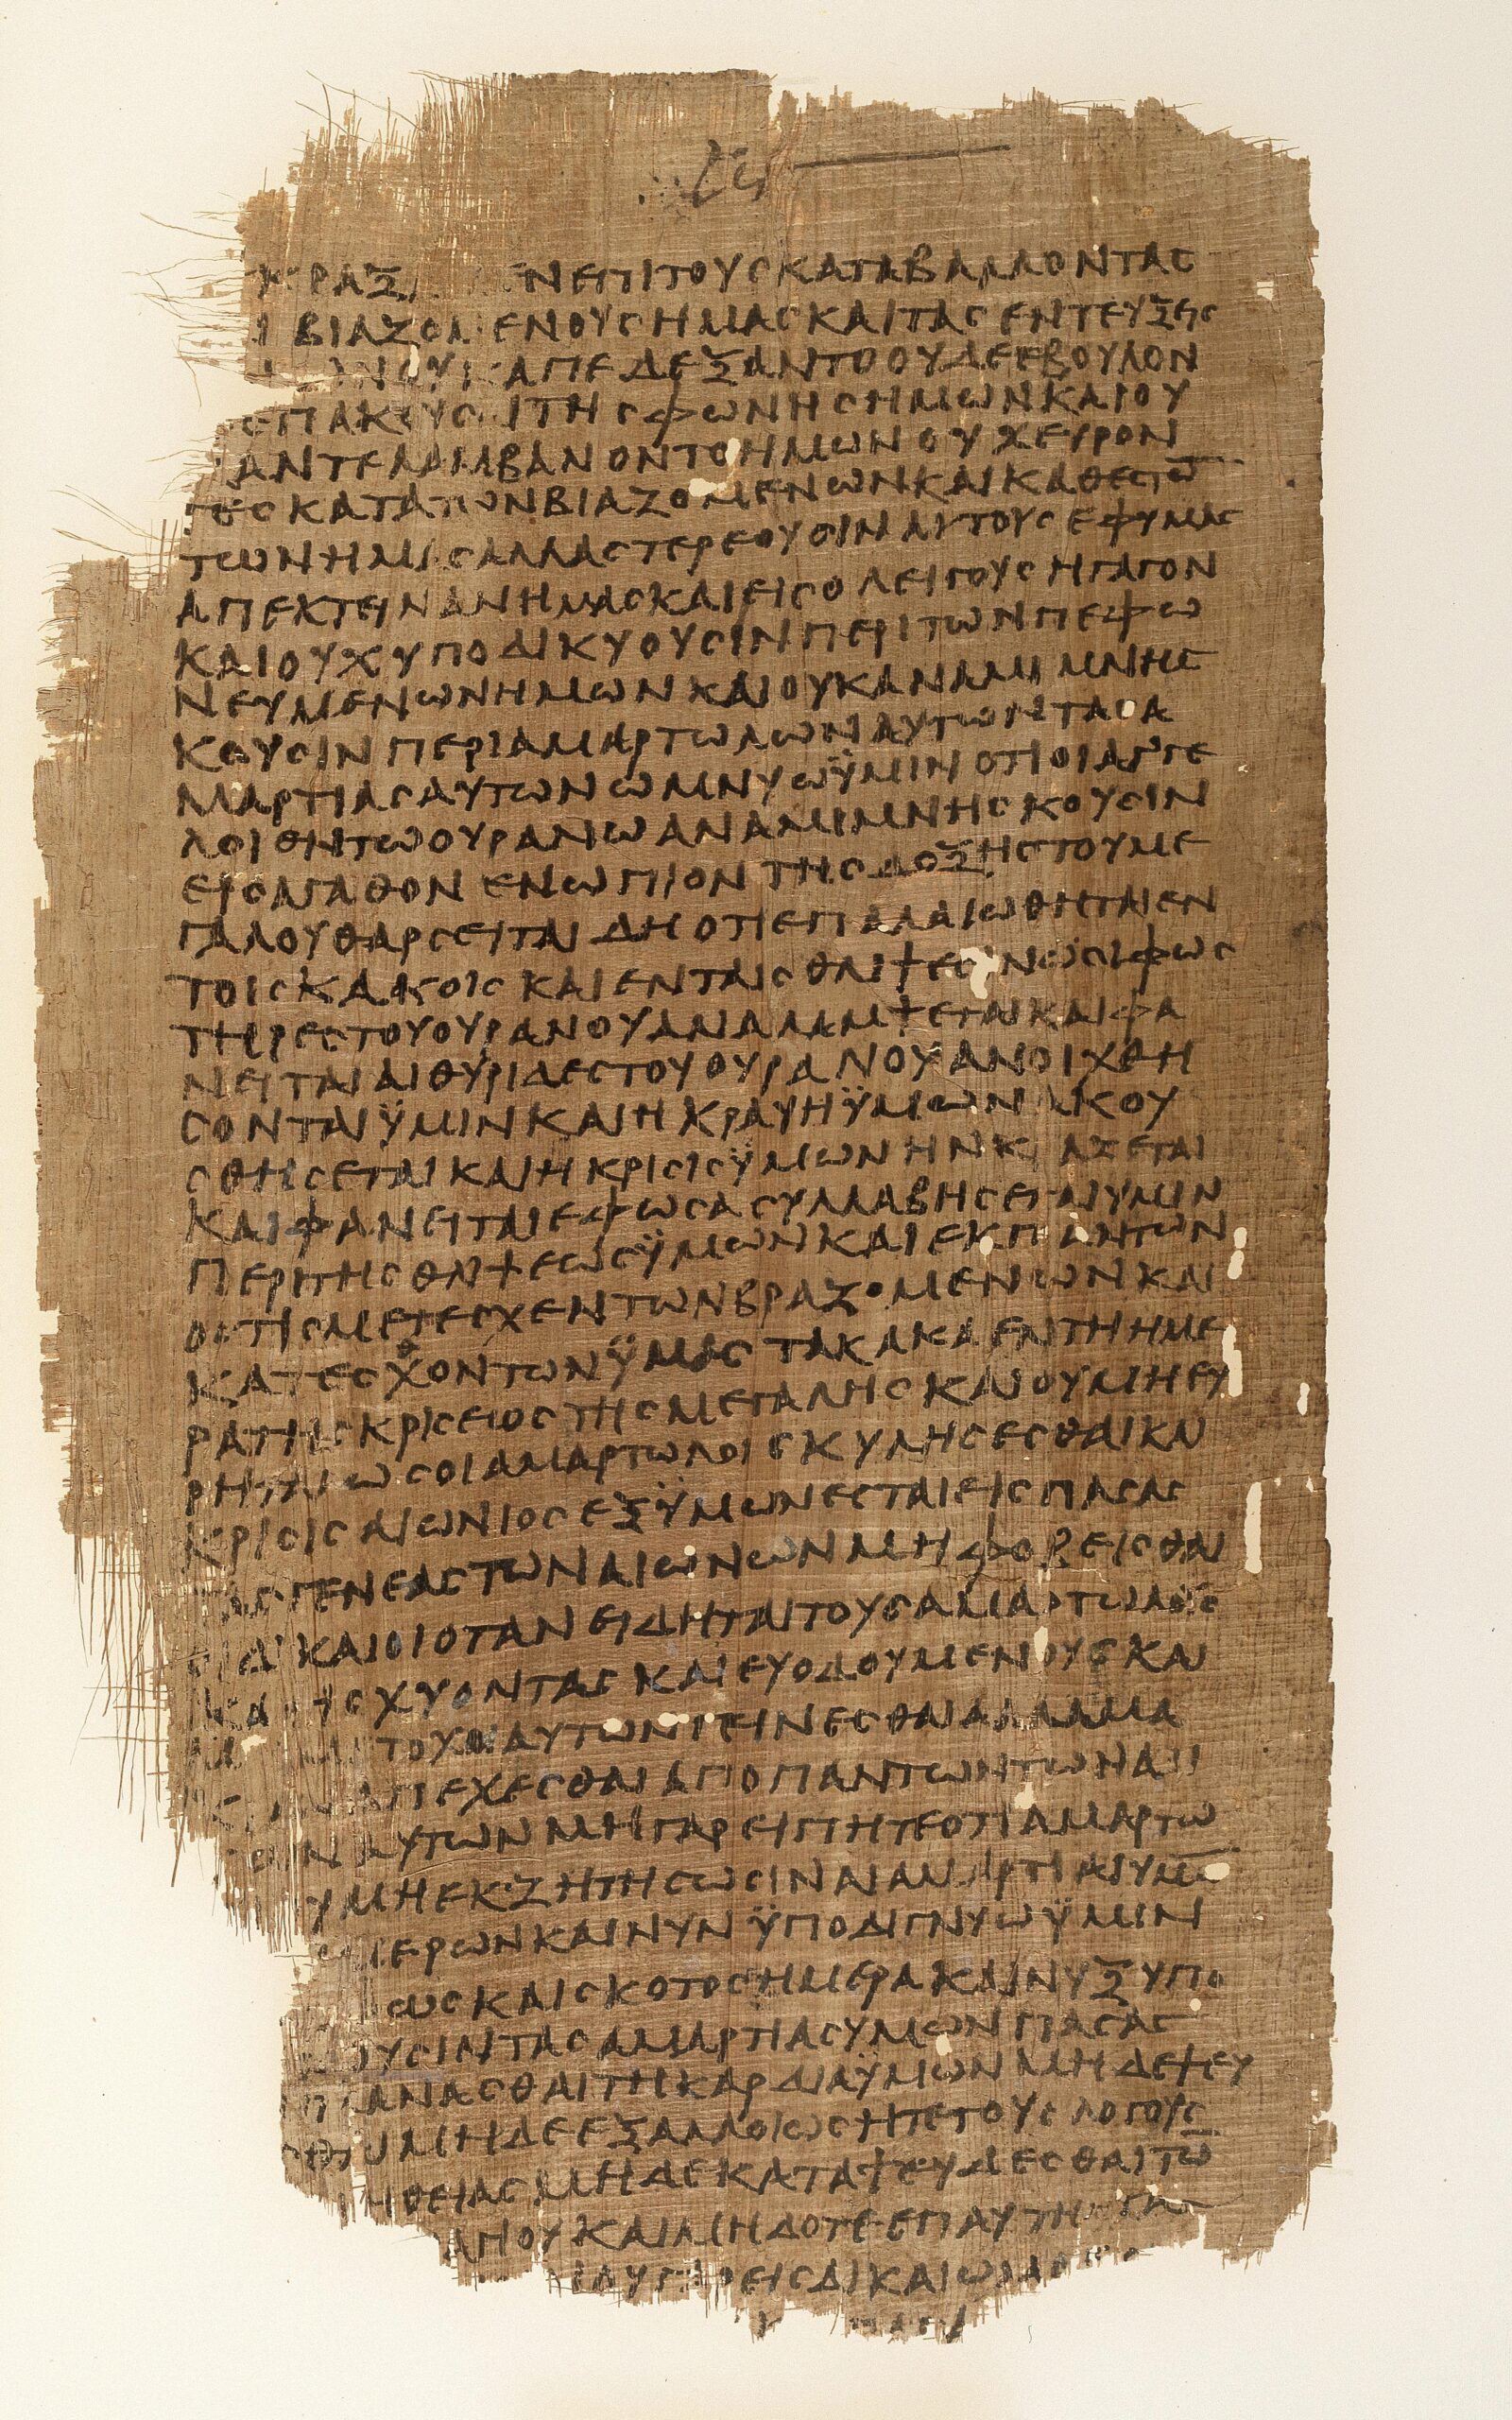 ΚΡΑΞ ΕΝΕΠΙΤΟΥϹΚΑΤΑΒΑΛΛΟΝΤΑϹ
ΒΙΑΖΟΜΕΝΟΥϹΗΜΑϹΚΑΙΤΑϹΕΝΤΕΥΞΕΙϹ
ΟΥΚΑΠΕΔΕΞΑΝΤΟΟΥΔΕΕΒΟΥΛΟΝ
ΕΠΑΚΟΥϹΑΙΤΗϹΦΩΝΗϹΗΜΩΝΚΑΙΟΥ
ΑΝΤΕΛΑΜΒΑΝΟΝΤΟΗΜΩΝΟΥΧΕΥΡΟΝ
ΤΕϹΚΑΤΑΤΩΝΒΙΑΖΟΜΕΝΩΝΚΑΙΚΑΘΕϹΤΩ̅
ΤΩΝΗΜΑϹΑΛΛΑϹΤΕΡΕΟΥϹΙΝΑΥΤΟΥϹΕΦΥΜΑϹ
ΑΠΕΚΤΕΙΝΑΝΗΜΑϹΚΑΙΕΙϹΟΛΕΙΓΟΥϹΗΓΑΓΟΝ
ΚΑΙΟΥΧΥΠΟΔΙΚΥΟΥϹΙΝΠΕΡΙΤΩΝΠΕΦΩ
ΝΕΥΜΕΝΩΝΗΜΩΝΚΑΙΟΥΚΑΝΑΜΙΜΝΗϹ
ΚΟΥϹΙΝΠΕΡΙΑΜΑΡΤΩΛΩΝΑΥΤΩΝΤΑϹΑ
ΜΑΡΤΙΑϹΑΥΤΩΝΩΜΝΥΩΫΜΙΝΟΤΙΟΙΑΓΓΕ
ΛΟΙΘΗΤΩΟΥΡΑΝΩΑΝΑΜΙΜΝΗϹΚΟΥϹΙΝ
ΕΙϹΑΓΑΘΟΝΕΝΩΠΙΟΝΤΗϹΔΟΞΗϹΤΟΥΜΕ
ΓΑΛΟΥΘΑΡϹΕΙΤΑΙΔΗΟΤΙΕΠΑΛΑΙΩΘΗΤΑΙΕΝ
ΤΟΙϹΚΑΚΟΙϹΚΑΙΕΝΤΑΙϹΘΛΙΨΕϹΙΝΩϹΙΦΩϹ
ΤΗΡΕϹΤΟΥΟΥΡΑΝΟΥΑΝΑΛΑΜΨΕΤΑΙΚΑΙΦΑ
ΝΕΙΤΑΙΑΙΘΥΡΙΔΕϹΤΟΥΟΥΡΑΝΟΥΑΝΟΙΧΘΗ
ϹΟΝΤΑΙΫΜΙΝΚΑΙΗΚΡΑΥΗΫΜΩΝΑΚΟΥ
ϹΘΗϹΕΤΑΙΚΑΙΗΚΡΙϹΙϹΫΜΩΝΗΝΚΡΑΞΕΤΑΙ
ΚΑΙΦΑΝΕΙΤΑΙΕΦΩϹΑϹΥΛΛΑΒΗϹΕΤΑΙΥΜΙΝ
ΠΕΡΙΤΗϹΘΛΙΨΕΩϹΫΜΩΝΚΑΙΕΚΠΑΝΤΩΝ
ΟϹΤΙϹΜΕΤΕϹΧΕΝΤΩΝΒΡΑΖΟΜΕΝΩΝΚΑΙ
ΚΑΤΕϹΧΟΝΤΩΝΫΜΑϹΤΑΚΑΚΑΕΝΤΗΗΜΕ
ΡΑΤΗϹΚΡΙϹΕΙΟϹΤΗϹΜΕΓΑΛΗϹΚΑΙΟΥΜΗΕΥ
ΡΗΤΑΙΩϹΟΙΑΜΑΡΤΩΛΟΙϹΚΥΛΗϹΕϹΘΑΙΚΑΙ
ΚΡΙϹΙϹΑΙΩΝΙΟϹΕΞΫΜΩΝΕϹΤΑΙΕΙϹΠΑϹΑϹ
ΤΑϹΓΕΝΕΑϹΤΩΝΑΙΩΝΩΝΜΗΦΟΒΕΙϹΘΑΙ
ΟΙΔΙΚΑΙΟΙΟΤΑΝΕΙΔΗΤΑΙΤΟΥϹΑΜΑΡΤΩΛΟΥϹ
ΚΑΤΙϹΧΥΟΝΤΑϹΚΑΙΕΥΟΔΟΥΜΕΝΟΥϹΚΑΙ
ΤΟΧΟΙΑΥΤΩΝΓΕΙΝΕϹΘΑΙΑΛΛΑΜΑ
ΑΠΕΧΕϹΘΑΙΑΠΟΠΑΝΤΩΝΤΩΝΑΔΙ
ΑΥΤΩΝΜΗΓΑΡΕΙΠΗΤΕΟΤΙΑΜΑΡΤΩ
ΥΜΗΕΚΖΗΤΗϹΩϹΙΝΑΙΑΜΑΡΤΙΑΙΥΜΩ̅
ΜΕΡΩΝΚΑΙΝΥΝΫΠΟΔΙΓΝΥΩΫΜΙΝ
ΩϹΚΑΙϹΚΟΤΟϹΗΜΕΡΑΚΑΙΝΥΞΥΠΟ
ΟΥϹΙΝΤΑϹΑΜΑΡΤΙΑϹΥΜΩΝΠΑϹΑϹ
ΠΛΑΝΑϹΘΑΙΤΗΚΑΡΔΙΑΫΜΩΝΜΗΔΕΨΕΥ
ΜΗΔΕΕΞΑΛΛΟΙΩϹΗΤΕΤΟΥϹΛΟΓΟΥϹ
ΗΘΕΙΑϹΜΗΔΕΚΑΤΑΨΕΥΔΕϹΘΑΙΤΩ̅
ΑΓΙΟΥΚΑΙΜΗΔΟΤΕΕΠΑΥΤΗ
ΓΑΡΕΙϹΔΙΚΑΙΩΜΑ